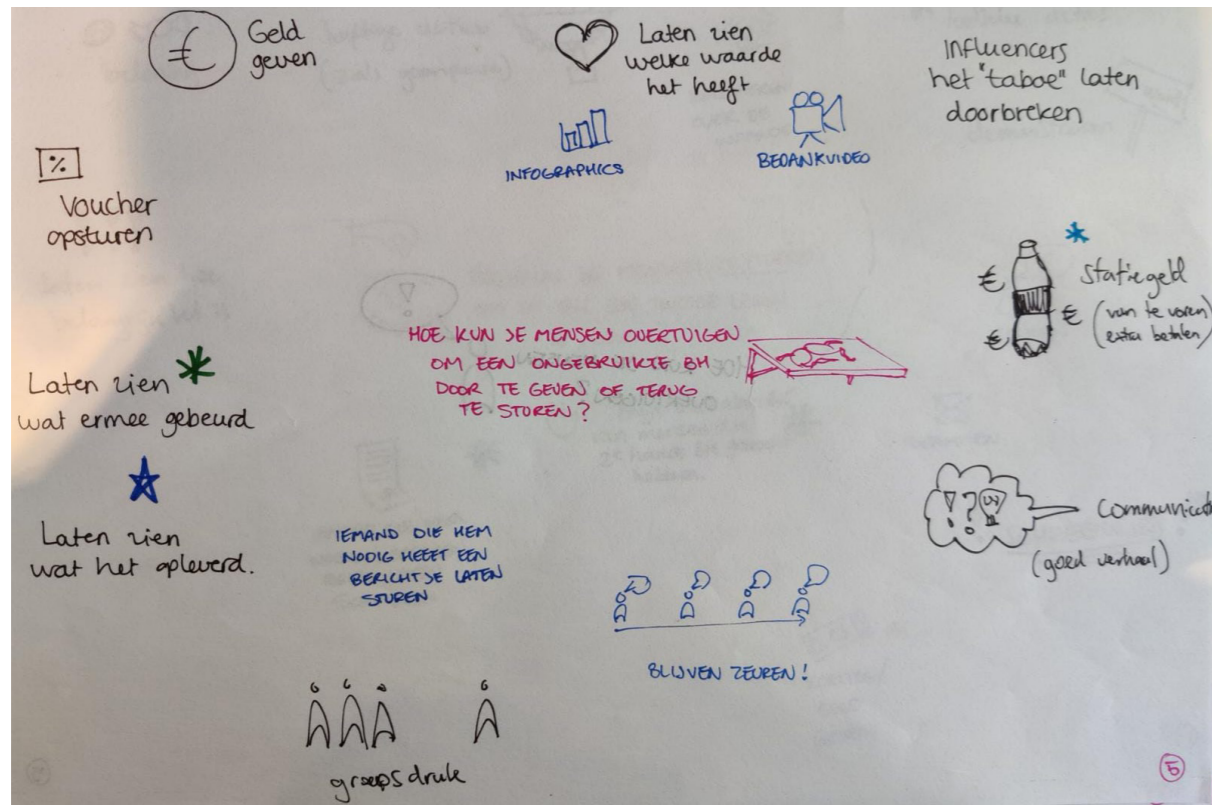 €
Geld
geven
Laten zien
welke waarde
het heeft
Influencers
het "taboe" laten
doorbreken
INFOGRAPHICS
BEDANKVIDEO
%
Voucher
opsturen
€
€
€
statiegeld
(van te voren
extra betalen)
HOE KUN JE MENSEN OVERTUIGEN
OM EEN ONGEBRUIKTE BH
DOOR TE GEVEN OF TERUG
TE STUREN?
Laten zien
wat ermee gebeurd
Laten zien
wat het opleverd.
IEMAND DIE HEM
NODIG HEEFT EEN
BERICHTJE LATEN
STUREN
! ?
Communicat
(goed verhaal)
BLIJVEN ZEUREN!
groepsdruk
5